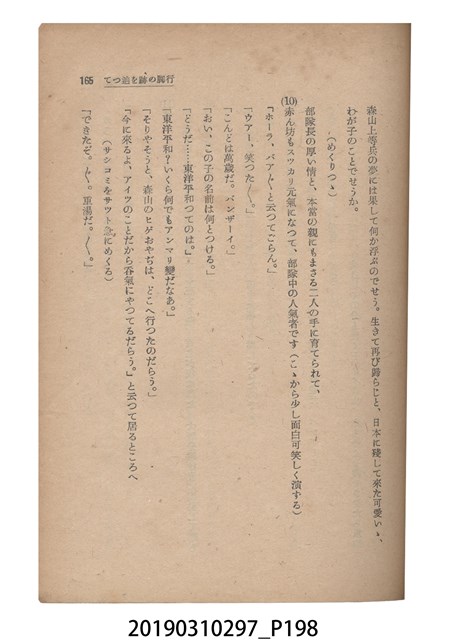 165　てつ追を跡の脚行
森山上等兵の夢には果して何か浮ぶのでせう。生きて再び歸らじと、日本に殘して來た可愛いゝ、
わが子のことでせうか。
（めくりつゝ）
部隊長の厚い情と、本當の親にもまさる二人の手に育てられて、
(10)赤ん坊もスツカリ元氣になつて、部隊中の人氣者です（こゝから少し面白可笑しく演ずる）
「ホーラ、バア〳〵と云つてごらん。」
「ウアー、笑つた〳〵。」
「こんどは萬歳だ。バンザーイ。」
「おい、この子の名前は何とつける。」
「どうだ……東洋平和つてのは。」
「東洋平和？いくら何でもアンマリ變だなあ。」
「そりやそうと、森山のヒゲおやぢは、どこへ行つたのだらう。」
「今に來るよ、アイツのことだから呑氣にやつてるだらう。」と云つて居るところへ
（サシコミをサツト急にめくる）
「できたぞ。〳〵。重湯だ。〳〵。」
20190310297_P198